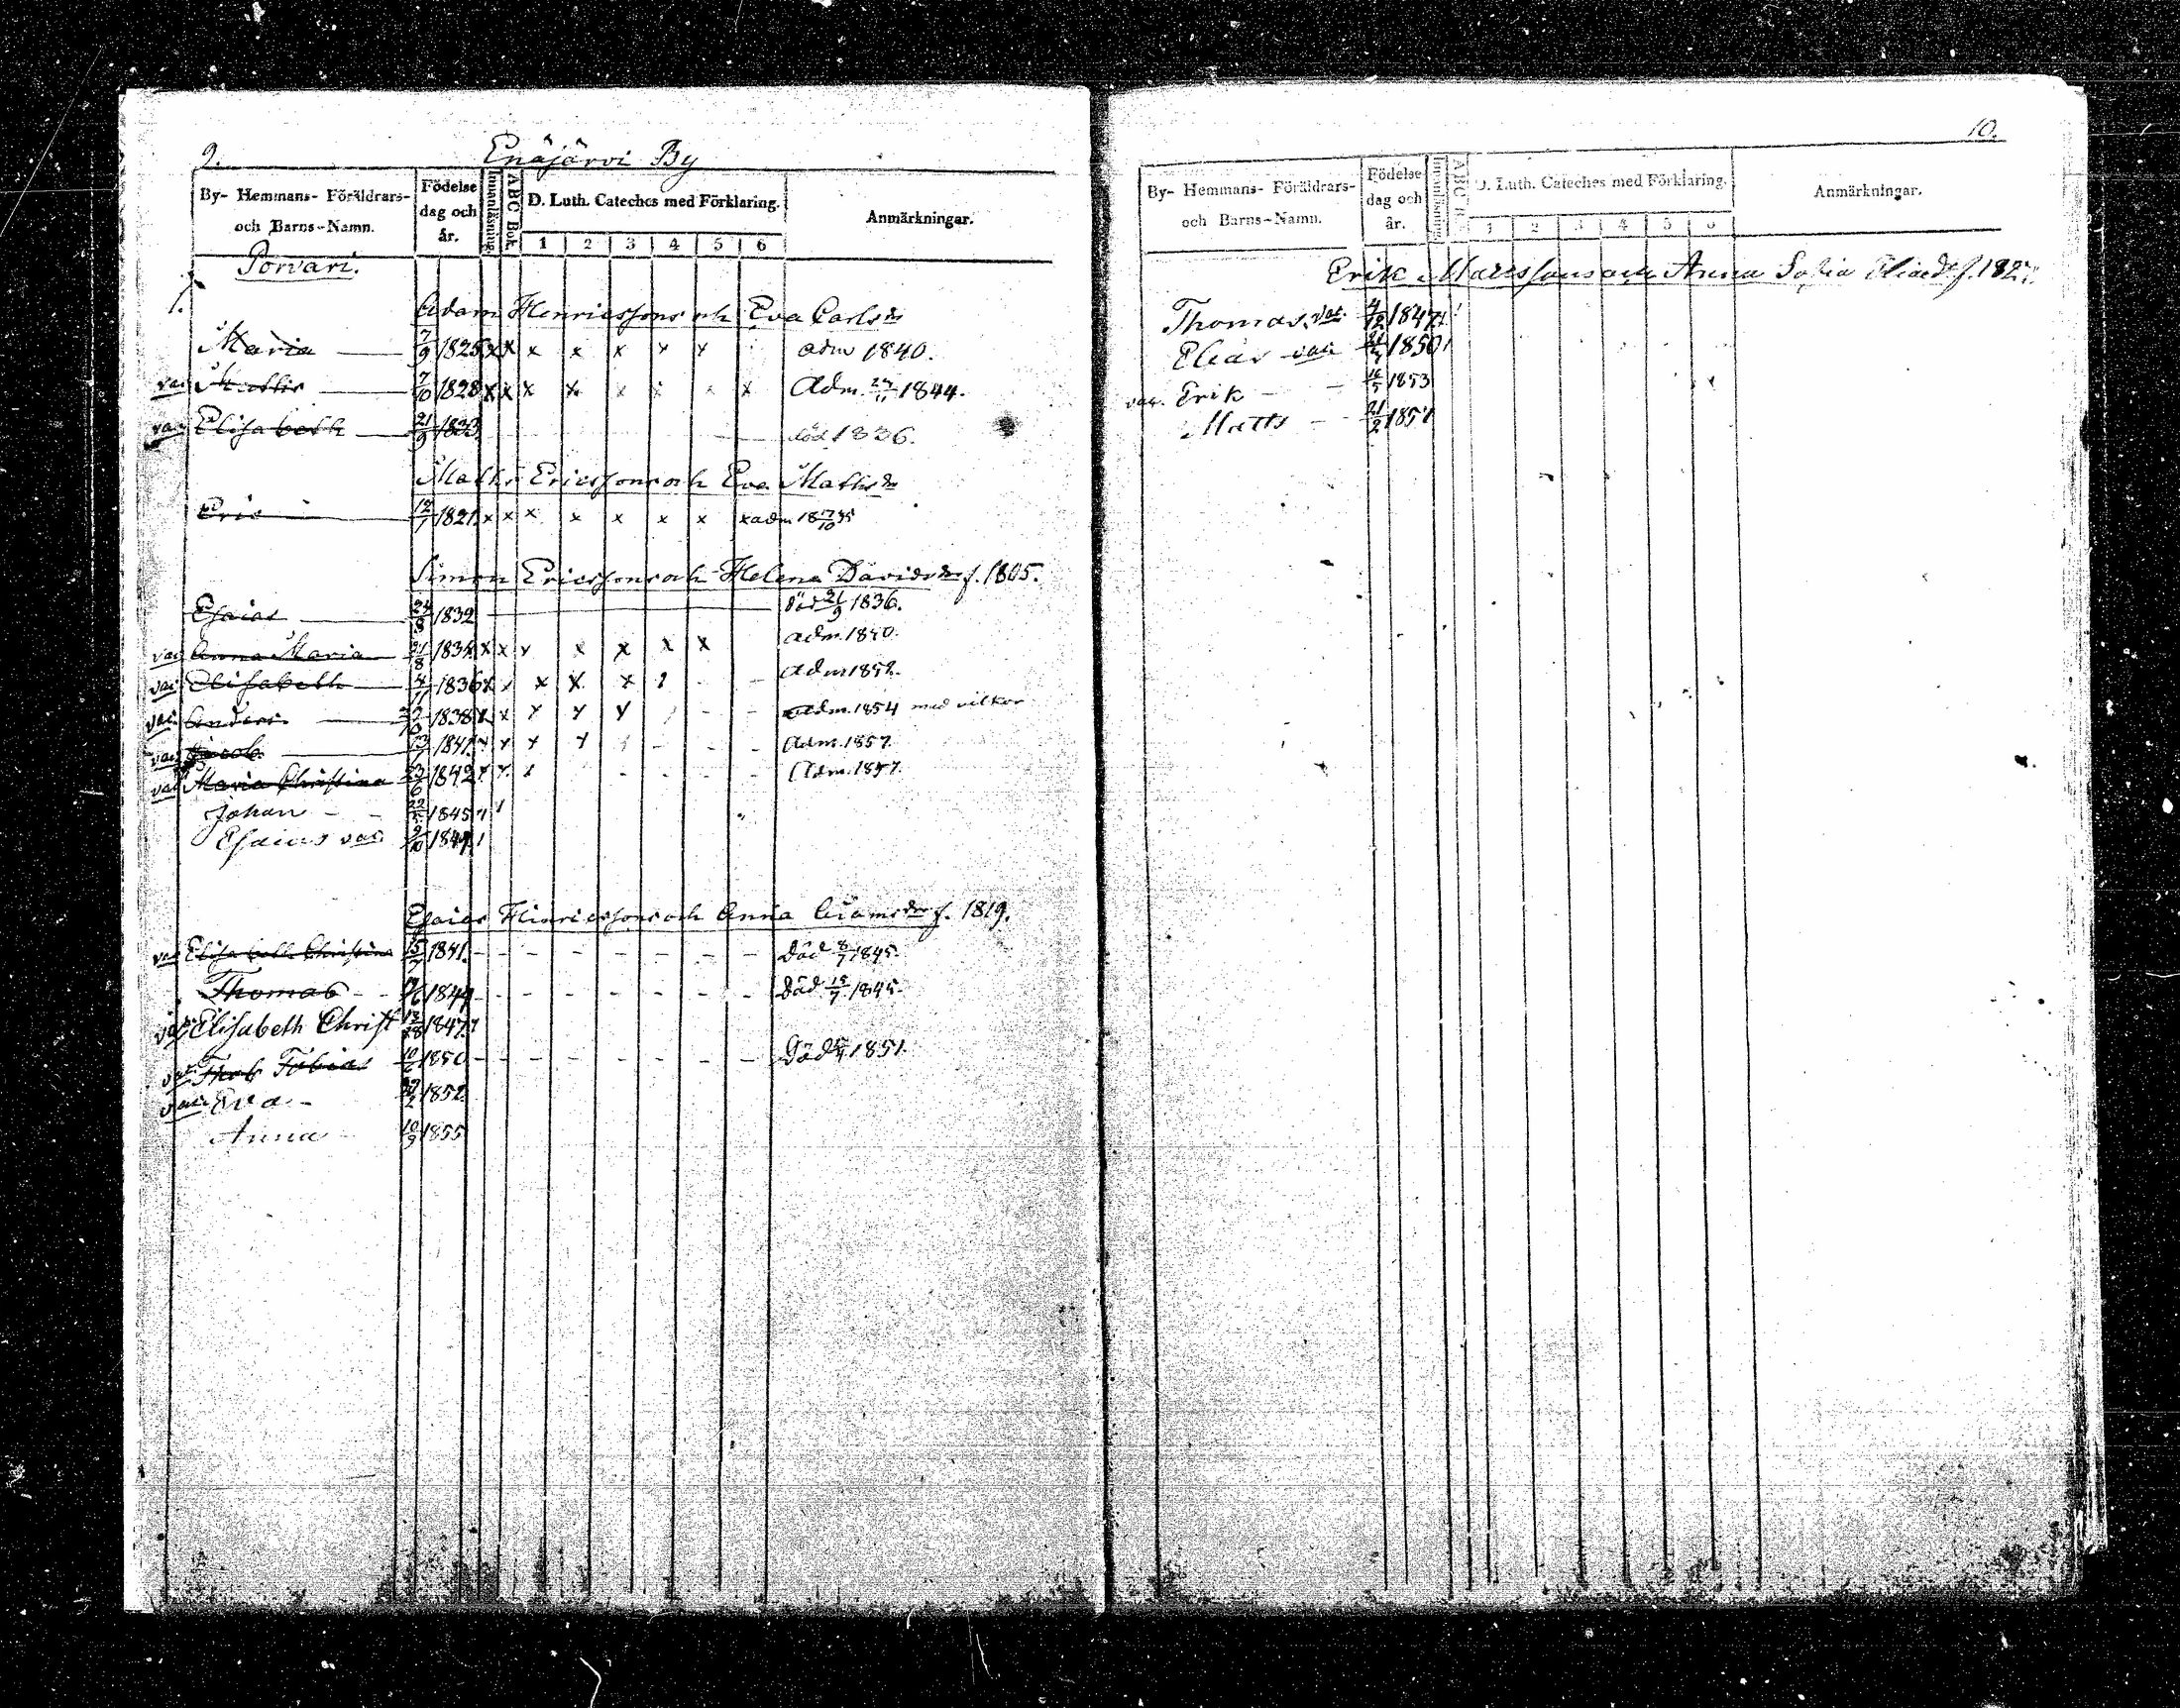 9.
Enäjärvi By
By- Hemmans- Föräldrars- och Barns-Namn.
Födelse dag och år.
Innanläsning
ABC Bok.
D. Luth. Cateches med Förklaring.
1 2 3 4 5 6
Anmärkningar.
Porvari.
1.
Adam Henricssons och Eva Carlsdr
Maria 7/9 1825 x x x x x x x adm 1840.
vac Matts 7/10 1828 x x x x x x x x Adm. 1844.
vac Elisabeth 21/9 1833 död 1836.
Matts Ericssons och Eva Mattsdr
Eric 12/1 1821 x x x x x x x x adm 18 17/10 35
Simon Ericssons och Helena Davidsdr f. 1805.
Esaias 1832 död 21/9 1836.
vac Anna Maria 1834 x x x x x x x adm. 1840.
vac Elisabeth 1836 x x x x x Adm 1852.
vac. Anders 1838 x x x x x Adm. 1854 med vilkor
vac Jacob 1841 x x x x Adm. 1857.
vac Maria Christina 23/6 1842 x x Adm. 1857.
Johan - - 1845
Esaias vac. 9/10 1849
Esaias Hinricssons och Anna Adamsdr f. 1819.
vac Elisabeth Christina 15/7 1841. - - - - - - - Död 8/7 1845.
Thomas - - 1844 - - - - - - - Död 15/7 1845.
vac. Elisabeth Christ 1847
vac. Tobias 10/6 1850 - - - - - - - Död 1851.
vac. Eva - 1852
Anna 10/9 1855
10.
By- Hemmans- Föräldrars- och Barns-Namn.
Födelse dag och år.
Innanläsning
ABC B
D. Luth. Cateches med Förklaring.
1 2 3 4 5 6
Anmärkningar.
Erik Matssons och Anna Sofia Eliaedr f. 1827.
Thomas. vac. 4/12 1847
Elias vac 1850
vac. Erik - - 16/5 1853
Matts - - 21/2 1857